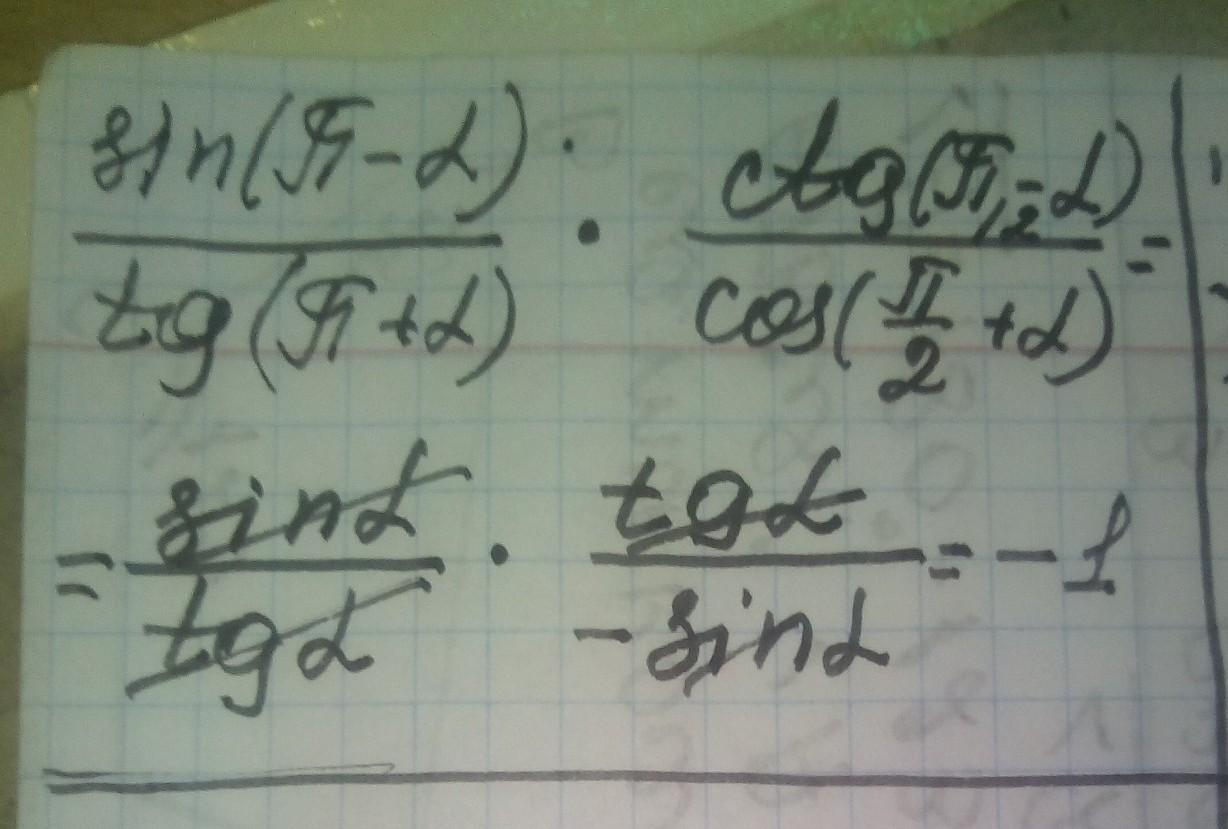 sin(π-α) · ctg(π/2-α) =
tg(π+α) cos(π/2+α)
= sinα · tgα = -1
tgα -sinα